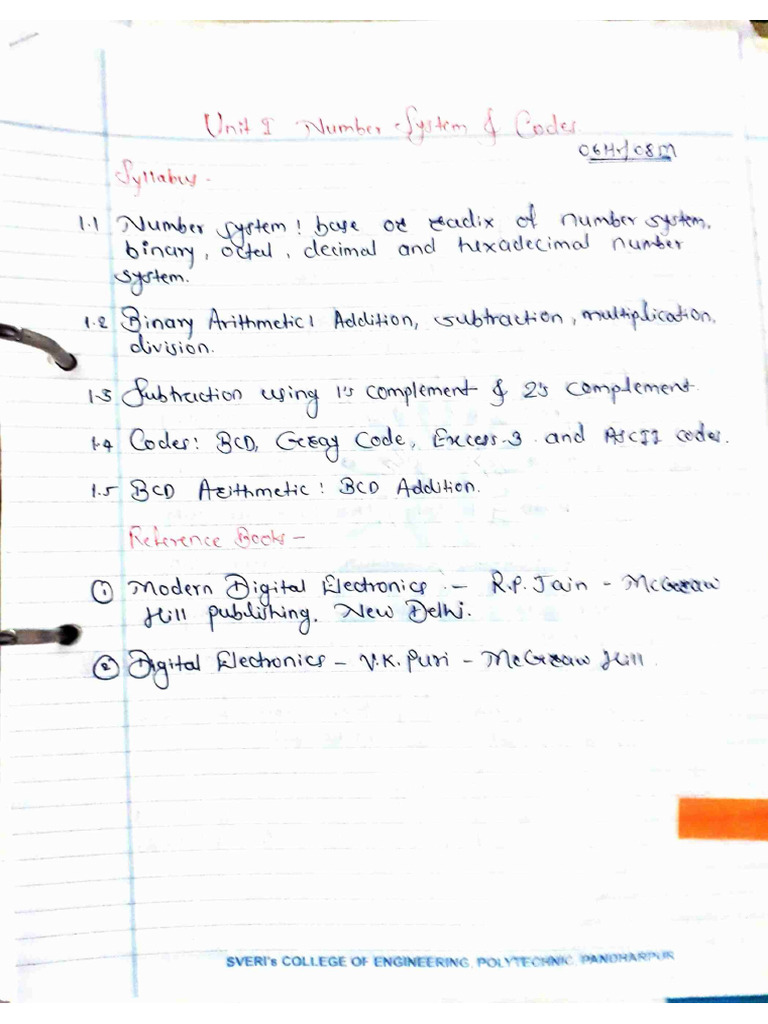 Unit I Number System & Codes
06Hr/08M
Syllabus -
1.1 Number system : base or radix of number system,
binary, octal, decimal and hexadecimal number
system.
1.2 Binary Arithmetic : Addition, subtraction, multiplication,
division.
1.3 Subtraction using 1's complement & 2's complement.
1.4 Codes: BCD, Gray Code, Excess-3 and ASCII codes.
1.5 BCD Arithmetic : BCD Addition.
Reference Books -
① Modern Digital Electronics :- R.P. Jain - McGraw
Hill publishing, New Delhi.
② Digital Electronics - V.K. Puri - McGraw Hill.
SVERI's COLLEGE OF ENGINEERING, POLYTECHNIC, PANDHARPUR